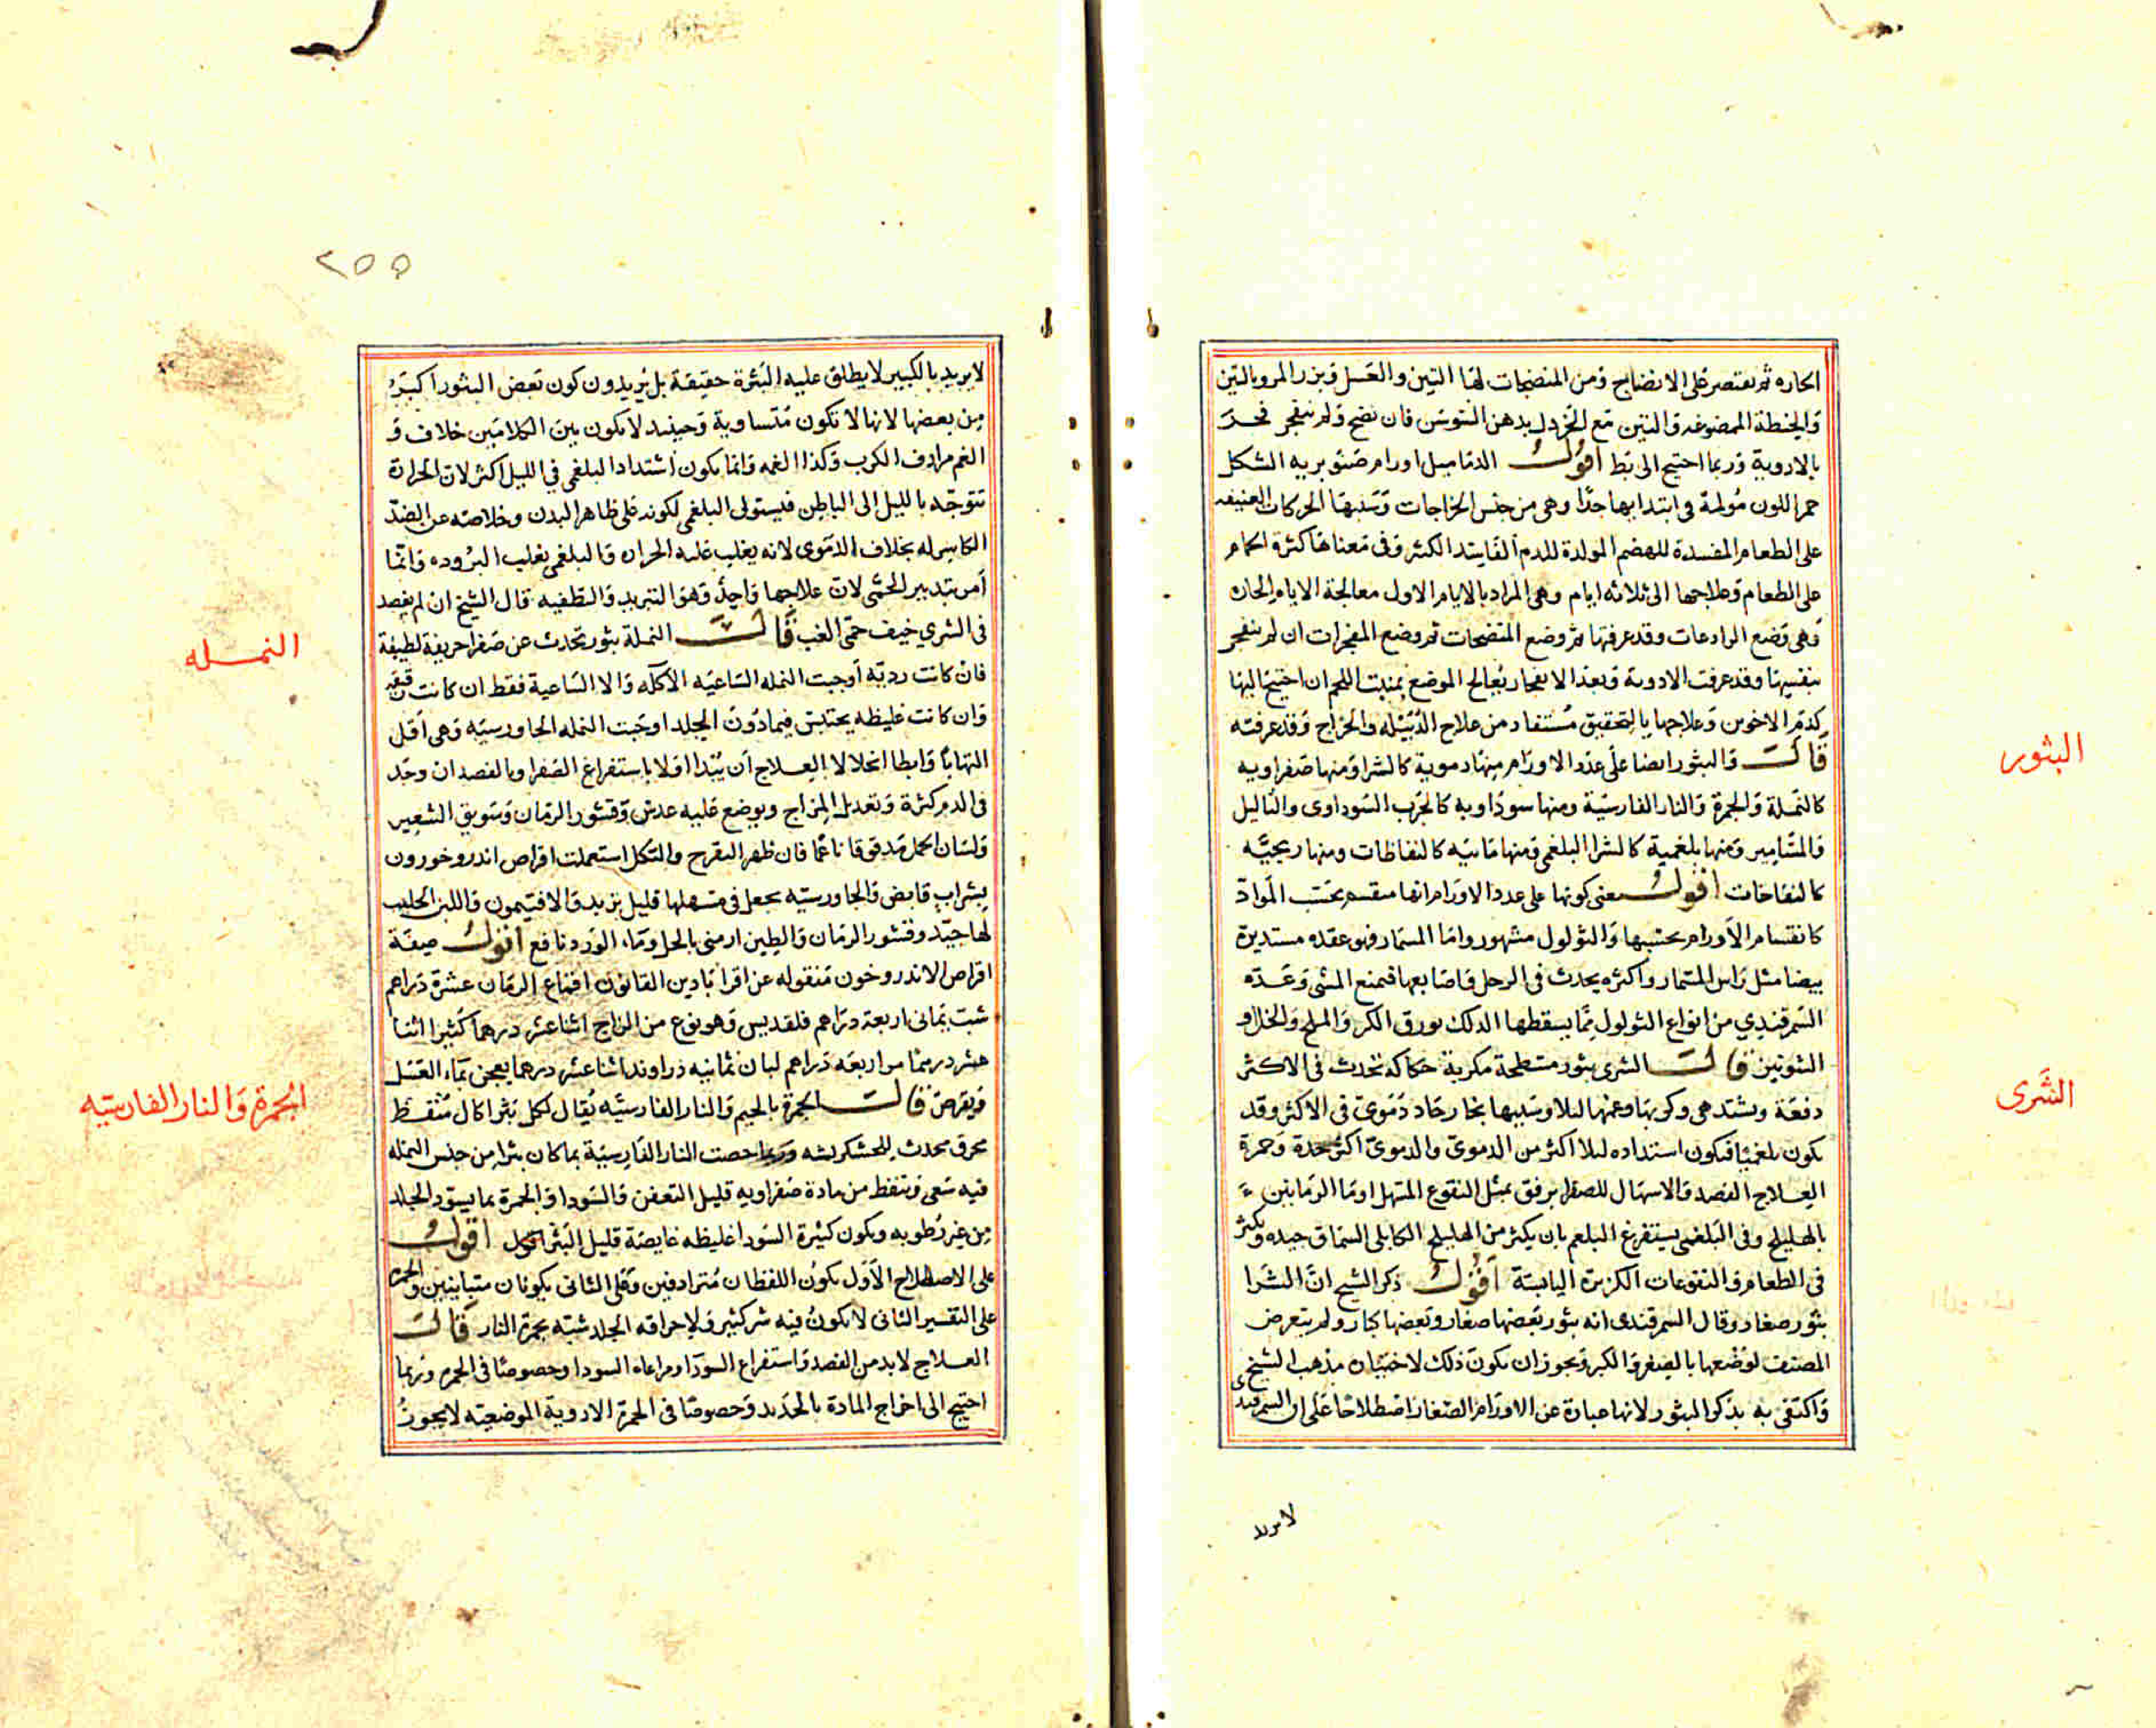 الحاره ثم يقتصر على الانضاج ومن المنضجات لها التين والعسل وبزر المرو بالتين
والحنطة الممضوغه والتين مع الخردل بدهن السوسن فان نضج ولم ينفجر فجر
بالادوية وربما احتيج الى بط اقول الدماميل اورام صنوبريه الشكل
حمر اللون مؤلمة فى ابتدايها جدا وهى من جنس الخراجات وسببها الحركات العنيفه
على الطعام المفسدة للهضم المولدة للدم الفاسد الكثير وفى معناها كثرة الحمام
على الطعام وعلاجها الى ثلاثه ايام وهى المراد بالايام الاول معالجة الاورام الحاره
وهى وضع الرادعات وقد عرفتها ثم وضع المنضجات ثم وضع المفجرات ان لم ينفجر
بنفسها وقد عرفت الادوية وبعد الانفجار يعالج الموضع بمنبت اللحم ان احتيج اليها
كدم الاخوين وعلاجها بالتحقيق مستفاد من علاج الدبيله والخراج وقد عرفته
قال والبثور ايضا على عدد الاورام منها دموية كالشرا ومنها صفراويه
كالنملة والجمرة والنار الفارسية ومنها سوداويه كالجرب السوداوى والثاليل
والمسامير ومنها بلغمية كالشرا البلغمى ومنها مائيه كالنفاطات ومنها ريحيه
كالنفاخات اقول معنى كونها على عدد الاورام انها منقسمه بحسب المواد
كانقسام الاورام بحسبها والثولول مشهور واما المسمار فهو عقده مستديرة
بيضا مثل راس المسمار واكثره يحدث فى الرجل واصابعها فيمنع المشى وعده
السمرقندي من انواع الثولول مما يسقطها الدلك بورق الكبر والملح والخل و
الشونيز قال الشرى بثور مسطحة مكربة حكاكة تحدث فى الاكثر
دفعة ويشتد هى وكربها وغمها ليلا وسببها بخار حاد دموى فى الاكثر وقد
يكون بلغميا فيكون اشتداده ليلا اكثر من الدموى والدموى اكثر حدة وحمرة
العلاج الفصد والاسهال للصفرا برفق بمثل النقوع المسهل او ما الرمانين
بالهليلج وفى البلغمى يستفرغ البلغم بان يكثر من الهليلج الكابلى السماق جيده ويكثر
فى الطعام والنقوعات الكزبرة اليابسة اقول ذكر الشيخ ان الشرا
بثور صغار وقال السمرقندى انه بثور بعضها صغار وبعضها كبار ولم يتعرض
المصنف لوضعها بالصغر والكبر ويجوز ان يكون ذلك لاختيار مذهب الشيخ
واكتفى به بذكر البثور لانها عبارة عن الاورام الصغار اصطلاحا على ان السمرقندى
لا يريد
البثور
الشرى
٢٥٥
لا يريد بالكبير لا يطلق عليه البثرة حقيقة بل يريدون كون بعض البثور اكبر
من بعضها لانها لا تكون متساوية وحينئذ لا يكون بين الكلامين خلاف و
الغم مرادف الكرب وكذا الغمه وانما يكون اشتداد البلغمى في الليل اكثر لان الحرارة
تتوجه بالليل الى الباطن فيستولى البلغمى لكونه على ظاهر البدن وخلاصه عن الضد
الكاسر له بخلاف الدموى لانه يغلب عليه الحراره والبلغمى يغلب البروده وانما
امر بتدبير الحمى لان علاجها واحد وهو التبريد والتطفيه قال الشيخ ان لم يفصد
فى الشري خيف حمى الغب قال النملة بثور تحدث عن صفرا حريفة لطيفة
فان كانت رديه اوجبت النمله الساعيه الاكله والا الساعية فقط ان كانت رقيقه
وان كانت غليظه يحتبس فيما دون الجلد اوجبت النمله الجاورسيه وهى اقل
التهابا وابطا انحلالا العلاج ان يبدا اولا باستفراغ الصفرا وبالفصد ان وجد
فى الدم كثرة وتعديل المزاج ويوضع عليه عدس وقشور الرمان وسويق الشعير
ولسان الحمل مدقوقا ناعما فان ظهر التقرح والتاكل استعملت اقراص اندروخورون
بشراب قابض والجاورسيه يجعل فى مسهلها قليل تربد والافتيمون واللبن الحليب
لها جيد وقشور الرمان والطين ارمنى بالخل وماء الورد نافع اقول صفة
اقراص الاندروخون منقوله عن اقراباذين القانون اقماع الرمان عشرة دراهم
شب يمانى اربعة دراهم قلقديس وهو نوع من الزاج اثنا عشر درهما كثيرا اثنا
عشر درهما مر اربعه دراهم لبان ثمانيه زراوند اثنا عشر درهما يعجن بماء العسل
ويقرص قال الجمرة بالجيم والنار الفارسيه يقال لكل بثر اكال منفط
محرق محدث للخشكريشه وربما خصت النار الفارسية بما كان بثرا من جنس النمله
فيه سعى وتنفط من مادة صفراويه قليل التعفن والسودا والجمرة بما يسود الجلد
من غير رطوبه ويكون كثيرة السودا غليظه غايصة قليل البثر اقول
على الاصطلاح الاول يكون اللفظان مترادفين وعلى الثانى يكونان متباينين والجمره
على التفسير الثانى لا يكون فيه شر كثير ولاحراقه الجلد شبه بجمرة النار قال
العلاج لا بد من الفصد واستفراغ السودا ومراعاة السودا وخصوصا فى الجمره وربما
احتيج الى اخراج المادة بالحديد وخصوصا فى الجمرة الادوية الموضعيه لا يجوز
النمله
الجمرة والنار الفارسيه